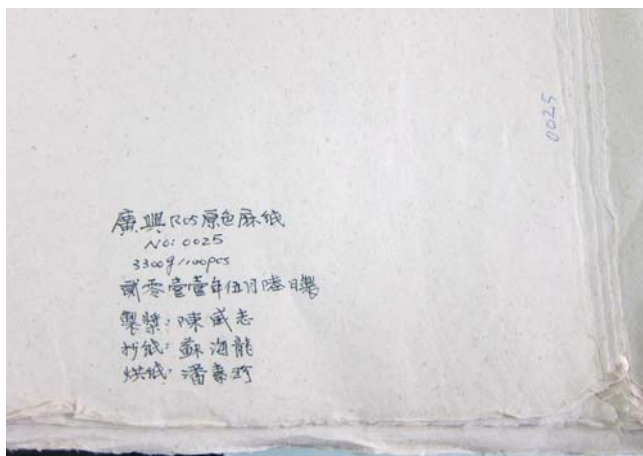 廣興R05原色麻紙
NO: 0025
3300g/100pcs
貳零壹壹年伍月陸日製
製漿: 陳威志
抄紙: 蘇海龍
烘紙: 潘素珍
0025